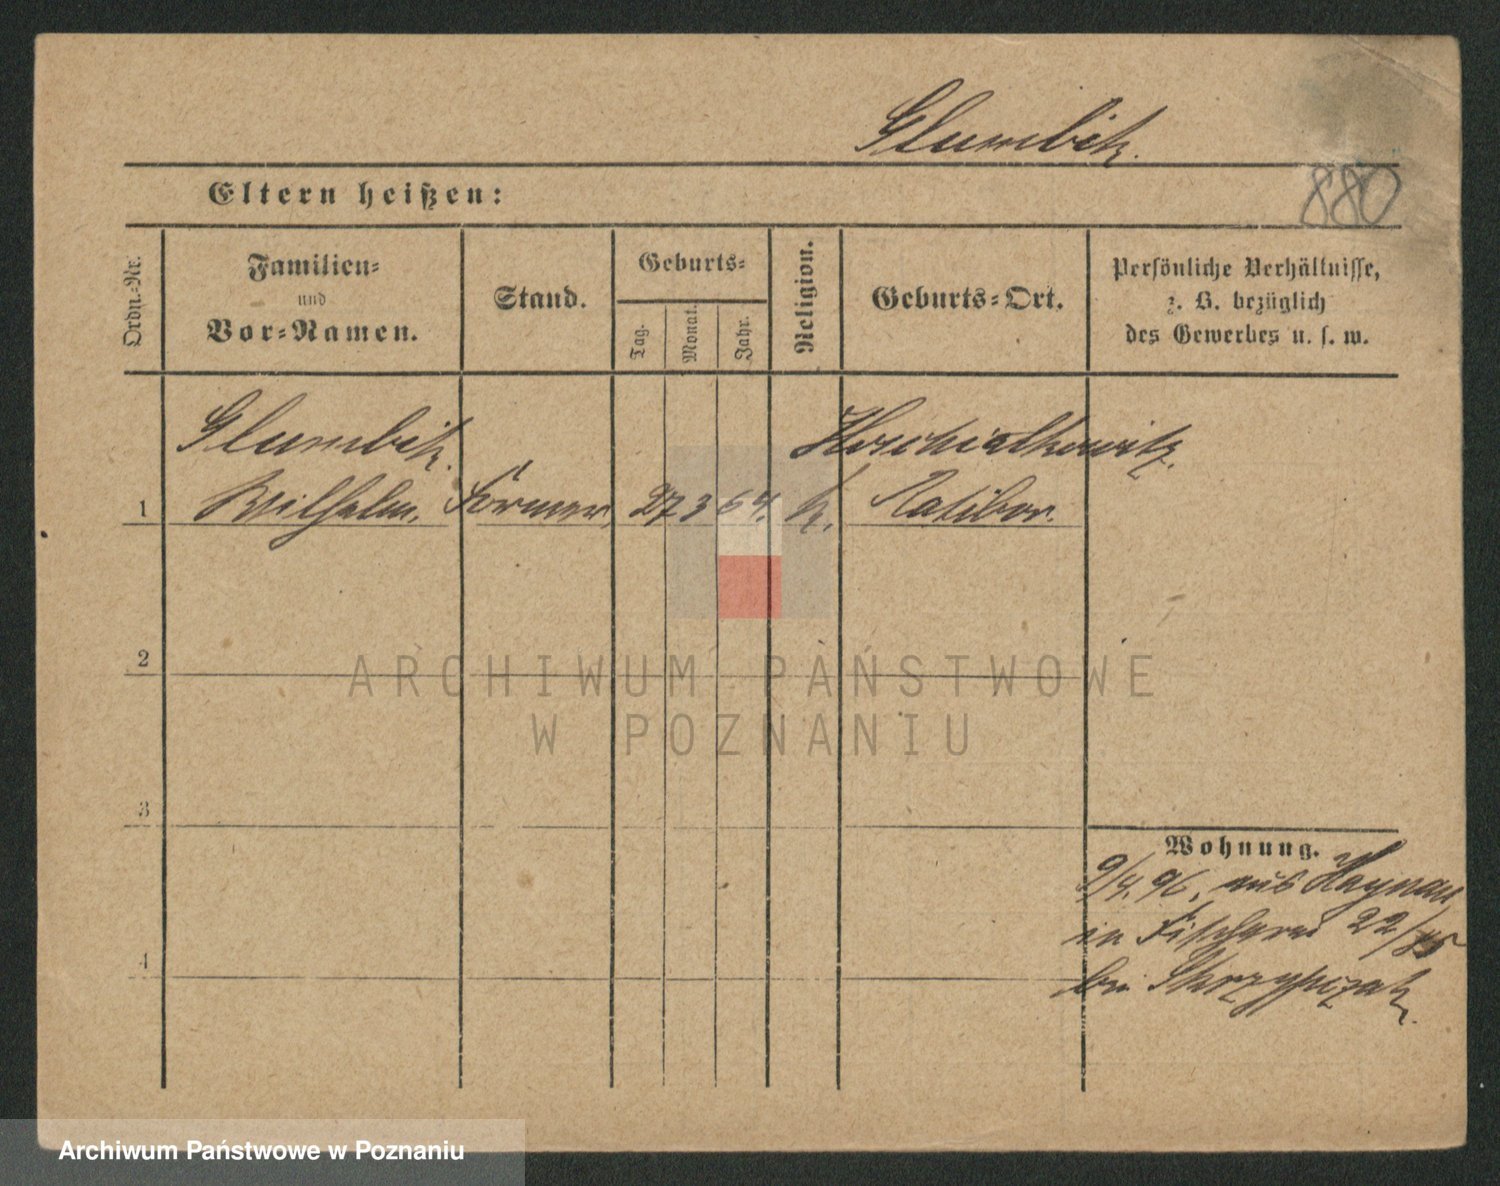 Glumbik.
Eltern heißen:
880
Ordn.-Nr.
Familien-
und
Vor-Namen.
Stand.
Geburts-
Tag.
Monat.
Jahr.
Religion.
Geburts-Ort.
Persönliche Verhältnisse,
z. B. bezüglich
des Gewerbes u. s. w.
Glumbik.
1 Wilhelm. Former 27 3 64. k. Ratibor.
2
3
4
Wohnung.
9/4. 96. aus Haynau
in Fischerei 22/
bei Skrzypczak.
ARCHIWUM PAŃSTWOWE
W POZNANIU
Archiwum Państwowe w Poznaniu